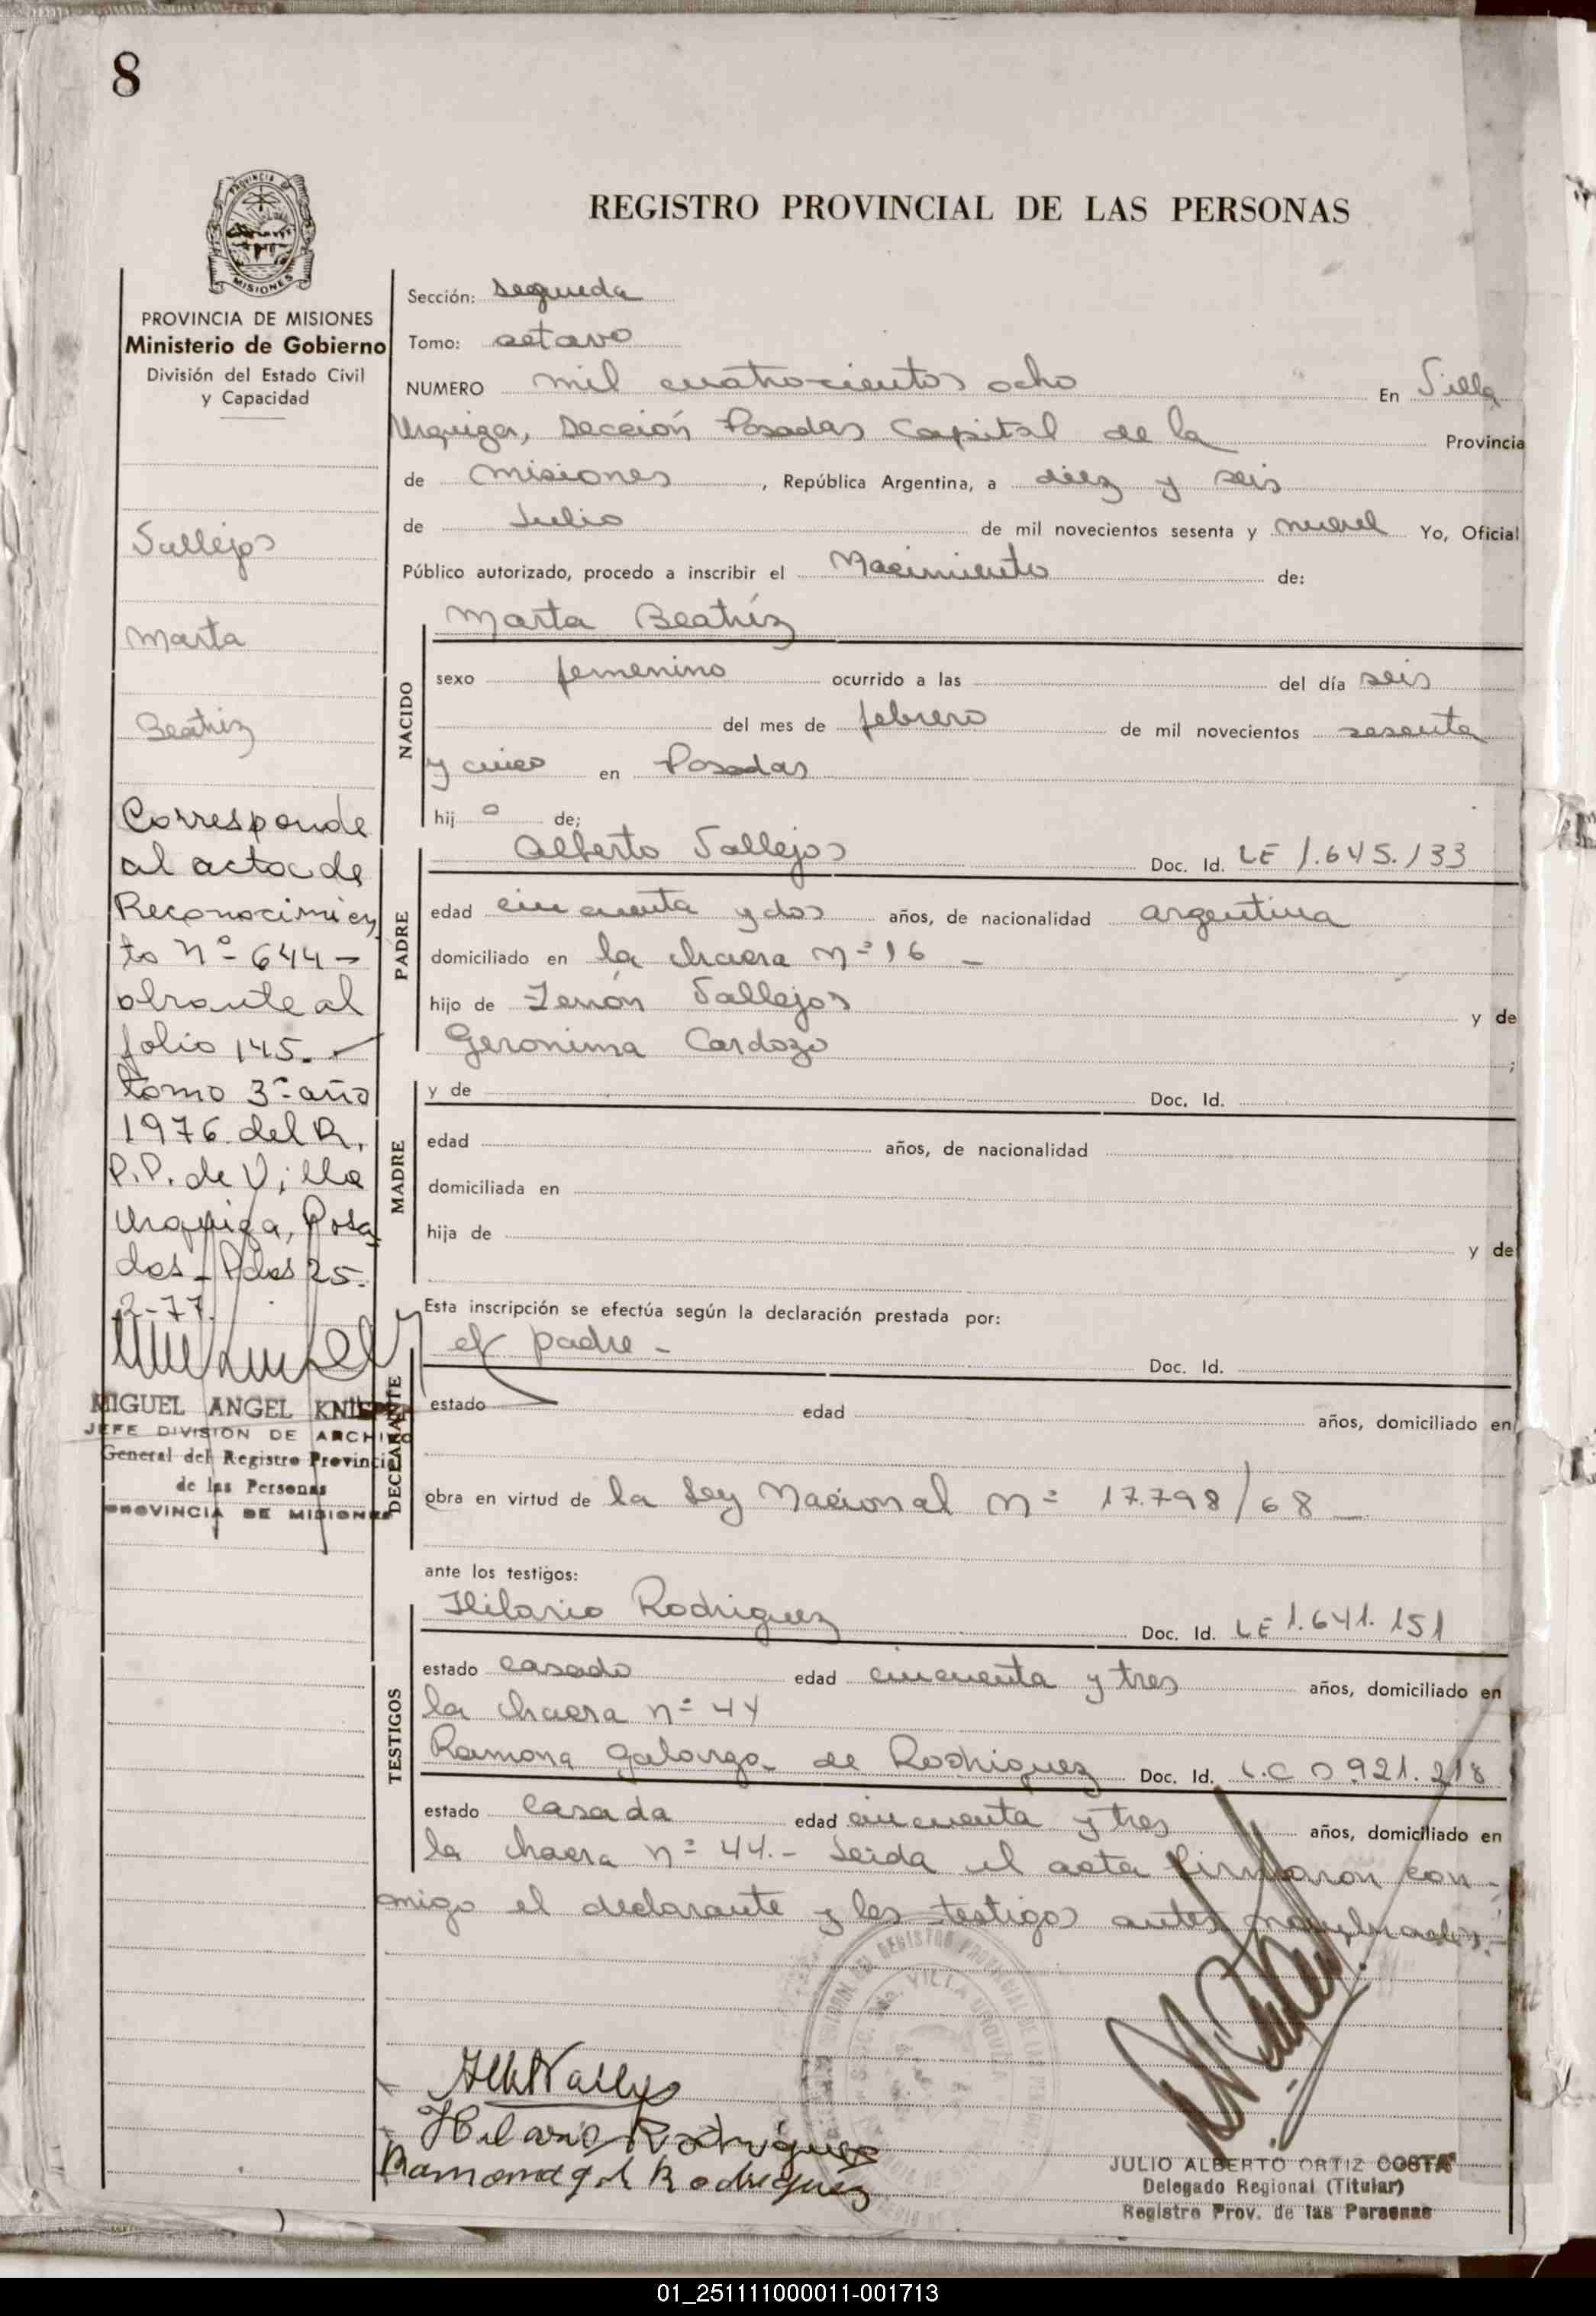 8
PROVINCIA DE
MISIONES
REGISTRO PROVINCIAL DE LAS PERSONAS
PROVINCIA DE MISIONES
Ministerio de Gobierno
División del Estado Civil
y Capacidad
Vallejos
Marta
Beatriz
Corresponde
al acta de
Reconocimien
to nº 644 -
obrante al
folio 145. -
tomo 3º año
1976 del R.
P.P. de Villa
Urquiza, Posa
das - Pdas 25.
2-77.
MIGUEL ANGEL
JEFE DIVISION DE ARCHIVO
General del Registro Provincial
de las Personas
PROVINCIA DE MISIONES
Sección: segunda
Tomo: octavo
NUMERO mil cuatrocientos ocho En Villa
Urquiza, Sección Posadas Capital de la Provincia
de Misiones, República Argentina, a diez y seis
de Julio de mil novecientos sesenta y nueve Yo, Oficial
Público autorizado, procedo a inscribir el Nacimiento de:
NACIDO
Marta Beatríz
sexo femenino ocurrido a las del día seis
del mes de febrero de mil novecientos sesenta
y cinco en Posadas
hij o de;
PADRE
Alberto Vallejos Doc. Id. LE 1.645.133
edad cincuenta y dos años, de nacionalidad argentina
domiciliado en la chacra nº 16 -
hijo de Zenón Vallejos y de
Geronima Cardozo ;
MADRE
y de Doc. Id.
edad años, de nacionalidad
domiciliada en
hija de y de
DECLARANTE
Esta inscripción se efectúa según la declaración prestada por:
el padre - Doc. Id.
estado edad años, domiciliado en
obra en virtud de la Ley Nacional nº 17.798/68 -
ante los testigos:
TESTIGOS
Hilario Rodriguez Doc. Id. LE 1.641.151
estado casado edad cincuenta y tres años, domiciliado en
la chacra nº 44
Ramona de Rodriguez Doc. Id. L.C 0.921.218
estado casada edad cincuenta y tres años, domiciliado en
la chacra nº 44.- Leida el acta firmaron con-
migo el declarante y los testigos antes nombrados.-
VILLA URQUIZA
Hilario Rodriguez
Ramona g de Rodriguez
JULIO ALBERTO ORTIZ COSTA
Delegado Regional (Titular)
Registro Prov. de las Personas
01_251111000011-001713